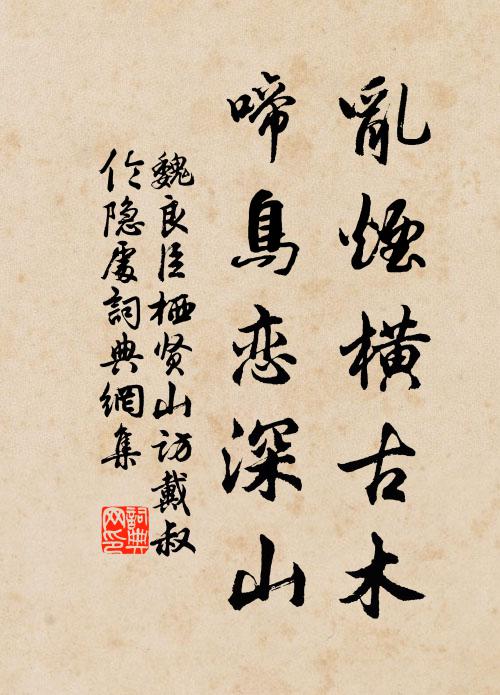 亂煙橫古木
啼鳥恋深山
魏良臣栖贤山访戴叔
伦隐處詞典網集
詞典
网印